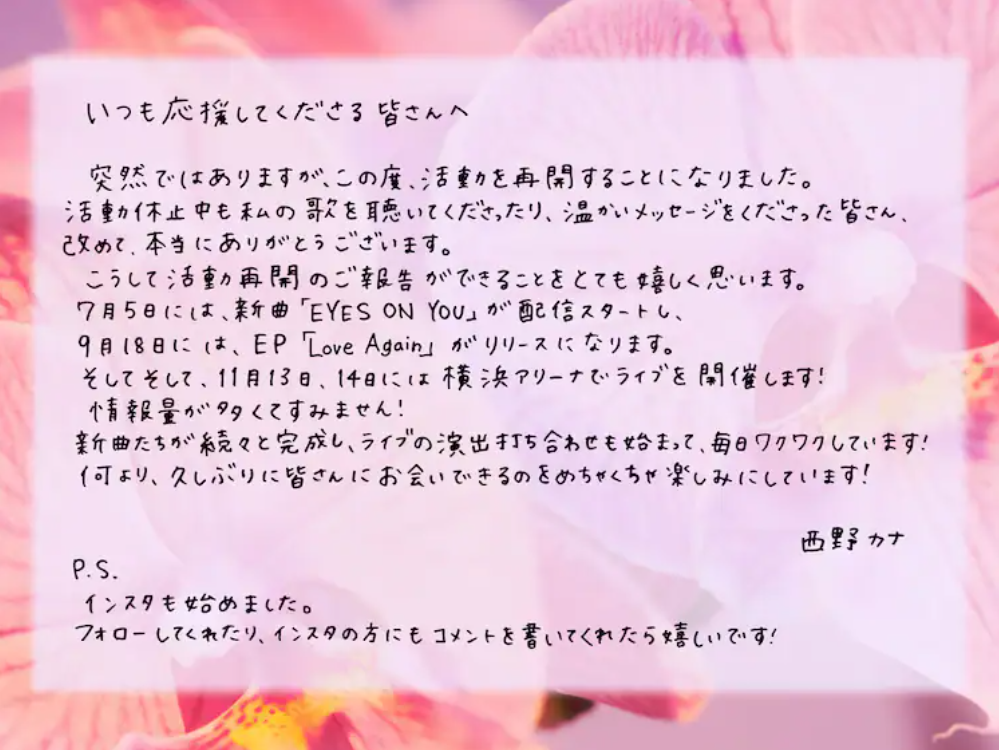 いつも応援してくださる皆さんへ
突然ではありますが、この度、活動を再開することになりました。
活動休止中も私の歌を聴いてくださったり、温かいメッセージをくださった皆さん、
改めて、本当にありがとうございます。
こうして活動再開のご報告ができることをとても嬉しく思います。
7月5日には、新曲「EYES ON YOU」が配信スタートし、
9月18日には、EP「Love Again」がリリースになります。
そしてそして、11月13日、14日には横浜アリーナでライブを開催します!
情報量が多くてすみません!
新曲たちが続々と完成し、ライブの演出打ち合わせも始まって、毎日ワクワクしています!
何より、久しぶりに皆さんにお会いできるのをめちゃくちゃ楽しみにしています!
西野カナ
P.S.
インスタも始めました。
フォローしてくれたり、インスタの方にもコメントを書いてくれたら嬉しいです!